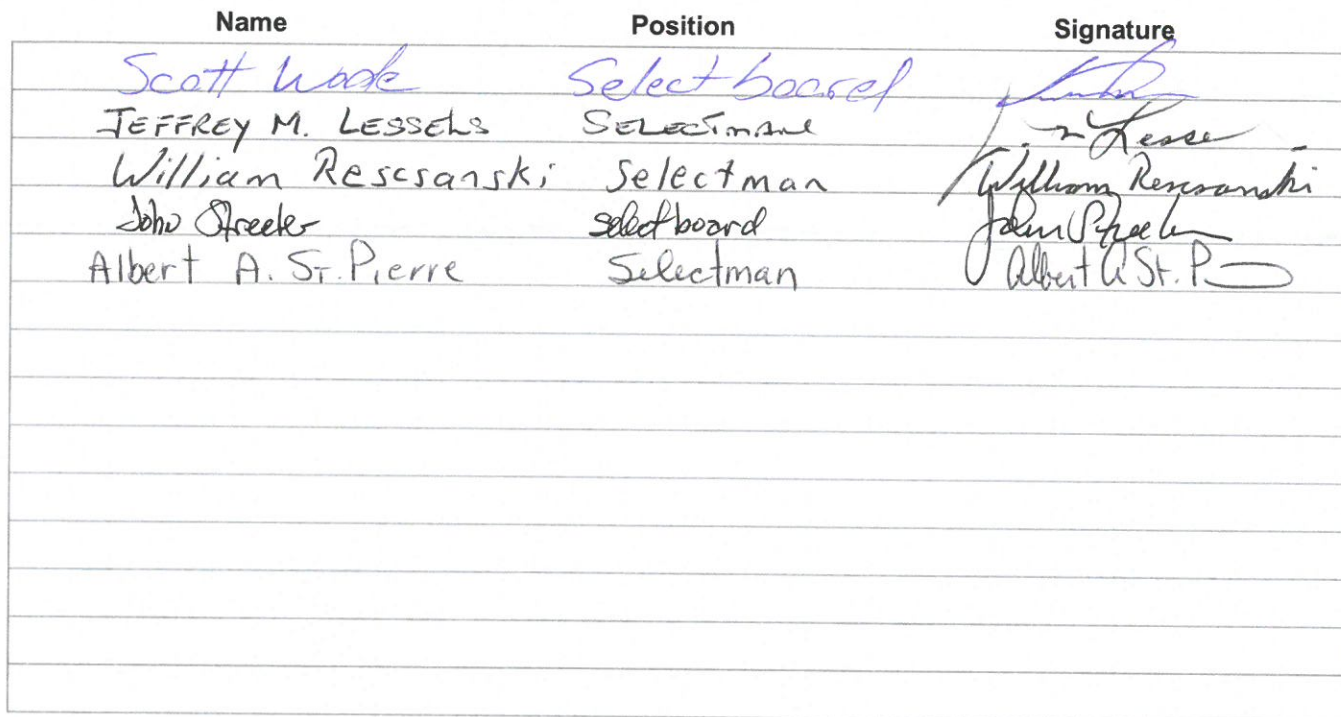 Name Position Signature
Scott Wade Selectboard
JEFFREY M. LESSELS SELECTMAN
William Rescsanski Selectman William Rescsanski
John Streeter selectboard John Streeter
Albert A. ST. Pierre Selectman Albert A St. P